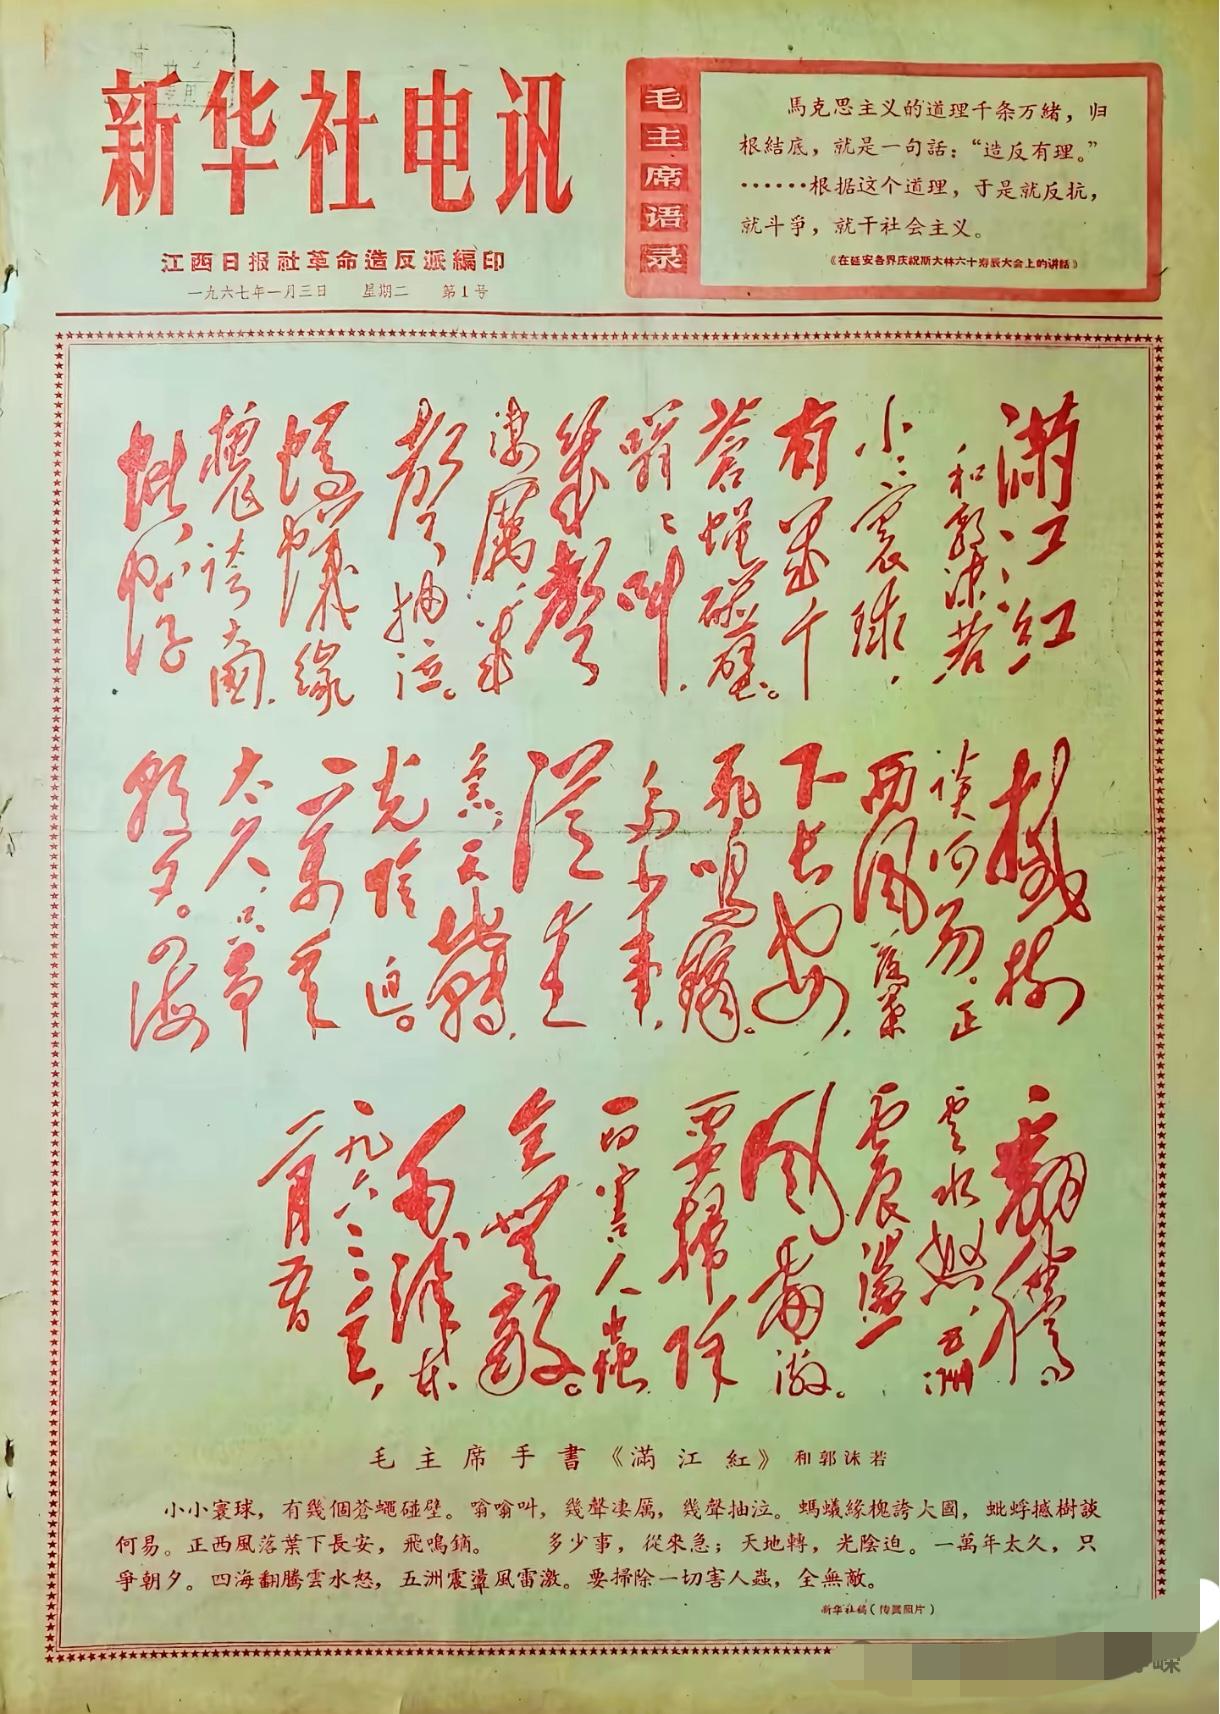 新华社电讯
江西日报社革命造反派編印
一九六七年一月三日 星期二 第1号
毛主席语录
馬克思主义的道理千条万緒，归
根結底，就是一句話：“造反有理。”
……根据这个道理，于是就反抗，
就斗爭，就干社会主义。
《在延安各界庆祝斯大林六十寿辰大会上的讲話》
滿江紅
和郭沫若
小小寰球，
有幾个
蒼蠅碰壁。
嗡嗡叫，
幾聲
凄厲，幾
聲抽泣。
螞蟻緣
槐誇大國，
蚍蜉
撼樹
談何易。正
西風落葉
下長安，
飛鳴鏑。
多少事，
從來
急；天地轉，
光陰迫。
一萬年
太久，只爭
朝夕。四海
翻騰
雲水怒，五洲
震盪
風雷激。
要掃除
一切害人蟲
全無敵。
毛澤東
毛主席手書《滿江紅》和郭沫若
小小寰球，有幾個蒼蠅碰壁。嗡嗡叫，幾聲凄厲，幾聲抽泣。螞蟻緣槐誇大國，蚍蜉撼樹談
何易。正西風落葉下長安，飛鳴鏑。 多少事，從來急；天地轉，光陰迫。一萬年太久，只
爭朝夕。四海翻騰雲水怒，五洲震盪風雷激。要掃除一切害人蟲，全無敵。
新华社稿（传真照片）